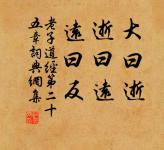 大曰逝
逝曰遠
遠曰反
老子道經第二十
五章詞典網集